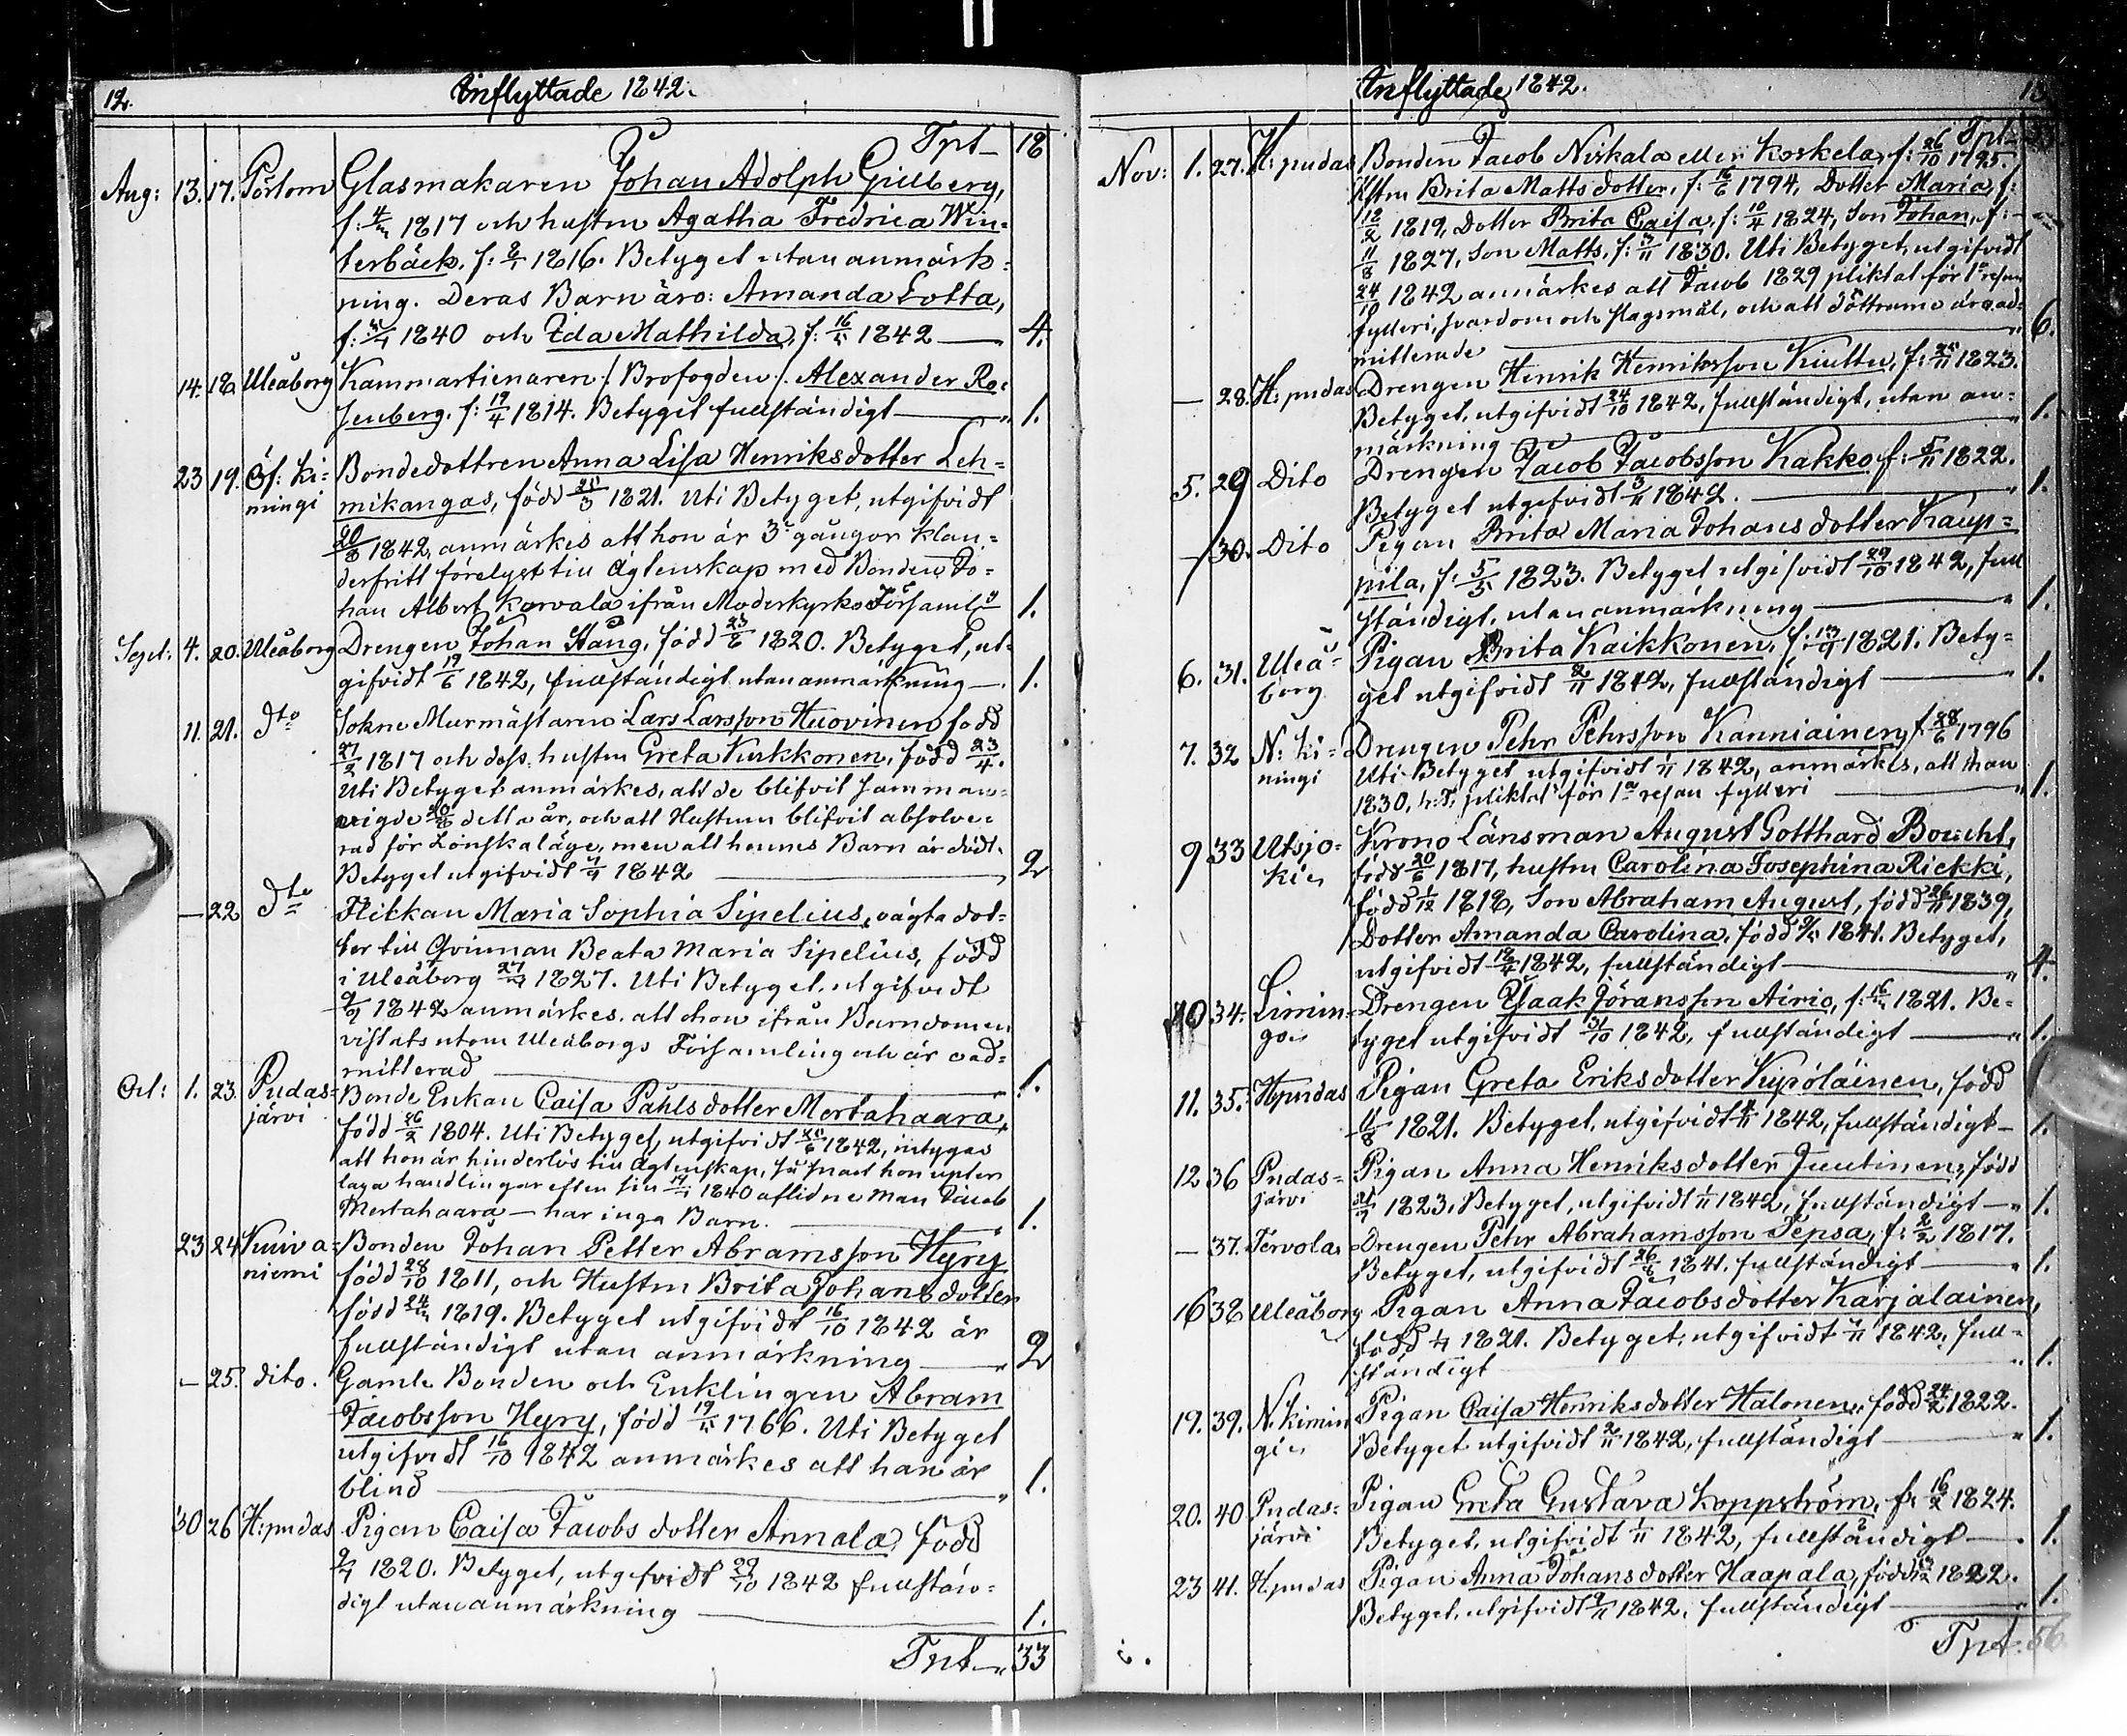 12.
Inflyttade 1842.
Tpt 18
Aug: 13. 17. Pörtom Glasmakaren Johan Adolph Gillberg,
f: 1817 och hustrn Agatha Fredrica Win-
terbäck, f: 8/1 1816. Betyget utan anmärk-
ning. Deras Barn äro: Amanda Lotta,
f: 1840 och Ida Mathilda, f: 16/5 1842 — 4.
14. 18. Uleåborg Kammartienaren /: Brofogden :/ Alexander Ro-
senberg, f: 19/4 1814. Betyget fullständigt — 1.
23 19. Öf: Ki- Bondedottren Anna Lisa Henriksdotter Leh-
mingi mikangas, född 25/3 1821. Uti Betyget, utgifvidt
20/8 1842, anmärkes att hon är 3e gångor klan-
derfritt förelyst till Äglenskap med Bonden Jo-
han Albert Karvala ifrån Moderkyrko Församl: 1.
Sept: 4. 20. Uleåborg Drengen Johan Stång, född 23/6 1820. Betyget, ut-
gifvidt 19/6 1842, fullständigt utan anmärkning — 1.
11. 21. Dto Sokne Murmästaren Lars Larsson Huovinen född
27/2 1817 och dess hustru Greta Kukkonen, född 23/4.
Uti Betyget anmärkes, att de blifvit samman-
vigde 20/8 detta år, och att Hustrun blifvit absolve-
rad för Lönskaläge, men att hennes Barn är dödt.
Betyget utgifvidt 1842 — 2
— 22 Dto Flickan Maria Sophia Sipelius, oägta dot-
ter till Qvinnan Beata Maria Sipelius, född
i Uleåborg 1827. Uti Betyget, utgifvidt
9/9 1842 anmärkes, att hon ifrån Barndomen
vistats utom Uleåborgs Församling och är oad-
mitterad — 1.
Oct: 1. 23. Pudas- Bonde Enkan Caisa Påhlsdotter Mertahaara,
järvi född 26/2 1804. Uti Betyget, utgifvidt 25/6 1842, intygas
att hon är hinderlös till Äglenskap, så snart hon upter
laga handlingar efter sin 1840 aflidne man Jacob
Mertahaara — har inga Barn. — 1.
23 24 Kuiva- Bonden Johan Petter Abramsson Hyry
niemi född 28/10 1811, och Hustrn Brita Johansdotter
född 1819. Betyget utgifvidt 16/10 1842 är
fullständigt utan anmärkning — 2
— 25. dito. Gamle Bonden och Enklingen Abram
Jacobsson Hyry, född 19/5 1766. Uti Betyget
utgifvidt 16/10 1842 anmärkes att han är
blind — 1.
30 26 H:pudas Pigan Caisa Jacobsdotter Annala, född
9/9 1820. Betyget, utgifvidt 29/10 1842 fullstän-
digt utan anmärkning — 1.
Tpt 33
Inflyttade 1842.
13
Tpt 33
Nov: 1. 27. H:pudas Bonden Jacob Niskala eller Koskela, f: 26/10 1795.
Hstru Brita Mattsdotter, f: 16/6 1794, Dotter Maria, f:
12/2 1819, Dotter Brita Caisa, f: 10/4 1824, Son Johan, f: —
11/8 1827, Son Matts, f: 3/11 1830. Uti Betyget, utgifvidt
24/10 1842 anmärkes att Jacob 1829 pliktat för 1a resan
fylleri, svardom och slagsmål, och att döttrarna äro ad-
mitterade — 6.
— 28. H:pudas Drengen Henrik Henriksson Kiuttu, f: 25/11 1823.
Betyget, utgifvidt 24/10 1842, fullständigt, utan an-
märkning — 1.
5. 29 Dito Drengen Jacob Jacobsson Kakko f: 5/11 1822.
Betyget utgifvidt 3/11 1842. — 1.
— 30. Dito Pigan Brita Maria Johansdotter Kaup-
pila, f: 5/5 1823. Betyget utgifvidt 29/10 1842, full
ständigt, utan anmärkning — 1.
6. 31. Uleå- Pigan Brita Kaikkonen, f: 1821. Bety-
borg get utgifvidt 2/11 1842, fullständigt — 1.
7. 32 N: Ki- Drengen Pehr Pehrsson Kanniainen, f 28/6 1796
mingi Uti Betyget utgifvidt 1842, anmärkes, att han
1830, h: T: pliktat för 1a resan fylleri — 1.
9 33 Utsjo- Krono Länsman August Gotthard Boucht,
ki född 20/6 1817, hustrn Carolina Josephina Riekki,
född 1/12 1818, Son Abraham August, född 26/11 1839,
Dotter Amanda Carolina, född 1841. Betyget,
utgifvidt 1842, fullständigt — 4.
10 34. Limin- Drengen Isaak Göransson Airio, f: 1821. Be-
go tyget utgifvidt 31/10 1842, fullständigt — 1.
11. 35. H:pudas Pigan Greta Eriksdotter Kypöläinen, född
1821. Betyget, utgifvidt 1842, fullständigt — 1.
12 36 Pudas- Pigan Anna Henriksdotter Juutinen, född
järvi 1823. Betyget, utgifvidt 1842, fullständigt — 1.
— 37. Tervola Drengen Pehr Abrahamsson Tepsa, f: 2/2 1817.
Betyget, utgifvidt 26/8 1841. fullständigt — 1.
16 38 Uleåborg Pigan Anna Jacobsdotter Karjalainen,
född 1821. Betyget, utgifvidt 1842, full-
ständigt — 1.
19. 39. N. Kimin Pigan Caisa Henriksdotter Halonen, född 24/2 1822.
gi Betyget utgifvidt 2/11 1842, fullständigt — 1.
20. 40 Pudas- Pigan Greta Gustava Koppström, f: 16/2 1824.
järvi Betyget, utgifvidt 1/11 1842, fullständigt — 1.
23 41. H:pudas Pigan Anna Johansdotter Haapala, född 1822.
Betyget, utgifvidt 1842, fullständigt — 1.
Tpt. 56